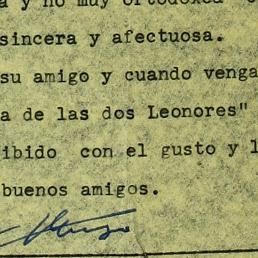 y no muy ortodoxa
sincera y afectuosa.
su amigo y cuando venga
a de las dos Leonores"
ibido con el gusto y l
buenos amigos.